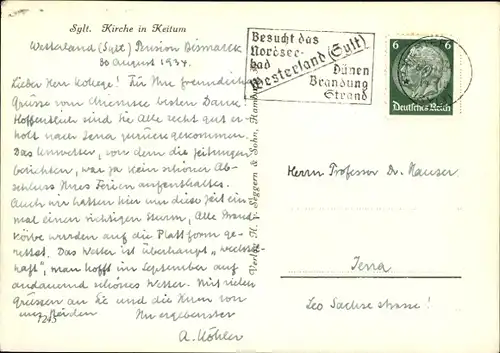 Sylt. Kirche in Keitum
Westerland (Sylt) Pension Bismarck
30 August 1934.
Lieber Herr Kollege! Für Ihre freundlichen
Grüsse vom Chiemsee besten Dank!
Hoffentlich sind Sie alle recht gut er-
holt nach Jena zurückgekommen.
Das Unwetter, von dem die Zeitungen
berichten, war ja kein schöner Ab-
schluss Ihres Ferienaufenthaltes.
Auch wir hatten hier um diese Zeit ein-
mal einen richtigen Sturm, alle Strand-
körbe wurden auf die Plattform ge-
rettet. Das Wetter ist überhaupt "wechsel-
haft", man hofft im September auf
andauernd schönes Wetter. Mit vielen
Grüssen an Sie und die Ihren von
uns beiden
Ihr ergebenster
A. Köhler
7245
Verlag H. Seggern & Sohn, Hamburg
Besucht das
Nordsee-
bad
Westerland (Sylt)
Dünen
Brandung
Strand
6 6
Deutsches Reich
Herrn Professor Dr.
Jena
Leo Sachse strasse!